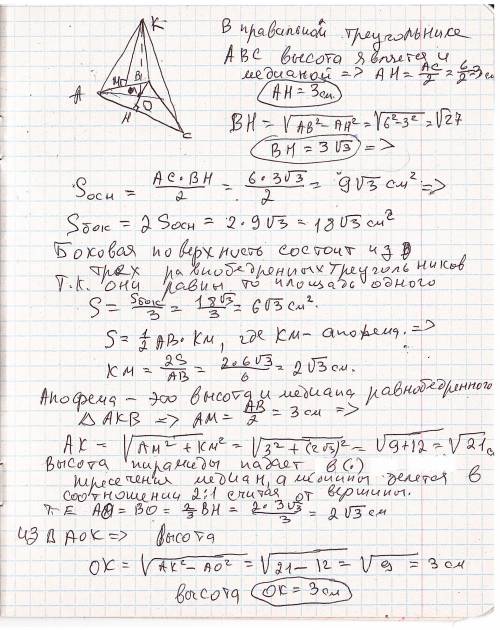 К
М
В
А
М
О
Н
С
В правильной треугольнике
АВС высота является и
медианой => AH = AC/2 = 6/2 = 3 см
AH = 3 см
BH = √AB² - AH² = √6² - 3² = √27
BH = 3√3 =>
Sосн = AC · BH / 2 = 6 · 3√3 / 2 = 9√3 см² =>
Sбок = 2 Sосн = 2 · 9√3 = 18√3 см²
Боковая поверхность состоит из
трех равнобедренных треугольников
Т.к. они равны то площадь одного
S = Sбок/3 = 18√3/3 = 6√3 см².
S = 1/2 AB · KM, где KM - апофема. =>
KM = 2S/AB = 2 · 6√3 / 6 = 2√3 см.
Апофема - это высота и медиана равнобедренного
△ AKB => AM = AB/2 = 3 см =>
AK = √AM² + KM² = √3² + (2√3)² = √9 + 12 = √21 с
Высота пирамиды падает в (·)
пресечения медиан, а медианы делется в
соотношении 2:1 считая от вершины.
Т.Е AO = BO = 2/3 BH = 2 · 3√3 / 3 = 2√3 см
Из △ AOK => высота
OK = √AK² - AO² = √21 - 12 = √9 = 3 см
высота OK = 3 см